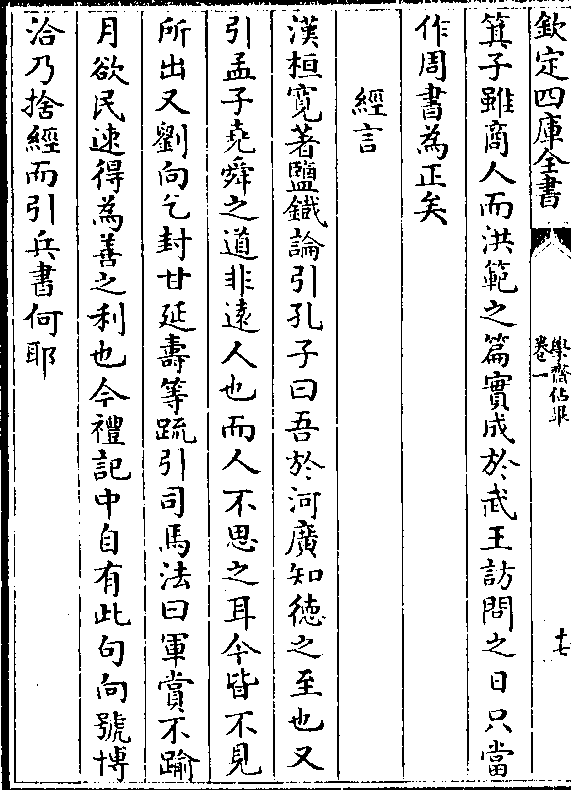 欽定四庫全書
學齋佔畢
卷一
十七
箕子雖商人而洪範之篇實成於武王訪問之日只當
作周書為正矣
經言
漢桓寛著鹽鐵論引孔子曰吾於河廣知徳之至也又
引孟子堯舜之道非逺人也而人不思之耳今皆不見
所出又劉向乞封甘延壽等疏引司馬法曰軍賞不踰
月欲民速得為善之利也今禮記中自有此句向號博
洽乃捨經而引兵書何耶